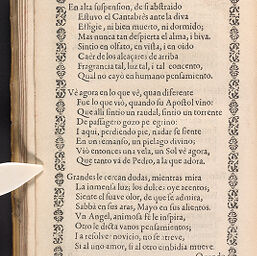 En alta suspension, de si abstraido
Estuvo el Cantabrès ante la diva
Effigie, ni bien muerto, ni dormido;
Mas nunca tan despierta el alma, i biva.
Sintio en olfato, en vista, i en oido
Caèr de los alcaçares de arriba
Fragrancia tal, luz tal, i tal concento,
Qual no cayò en humano pensamiento.
Vè agora lo que vè, quan diferente
Fue lo que viò, quando su Apostol vino!
Que alli sintio un raudal, sintio un torrente
De passagero gozo peregrino:
I aqui, perdiendo pie, nadar se siente
En un remanso, un pielago divino;
Viò entonces una vela, un Sol vè agora,
Que tanto và de Pedro, a la que adora.
Grandes le cercan dudas, mientras mira
La inmensa luz; los dulces oye acentos,
Siente el suave olor, de que se admira,
Sabbà en sus aras, Mayo en sus alientos.
Vn Angel, animosa fè le inspira,
Otro le dicta vanos pensamientos;
I a resolver novicio, no se atreve,
Si al uno amor, si al otro embidia mueve.